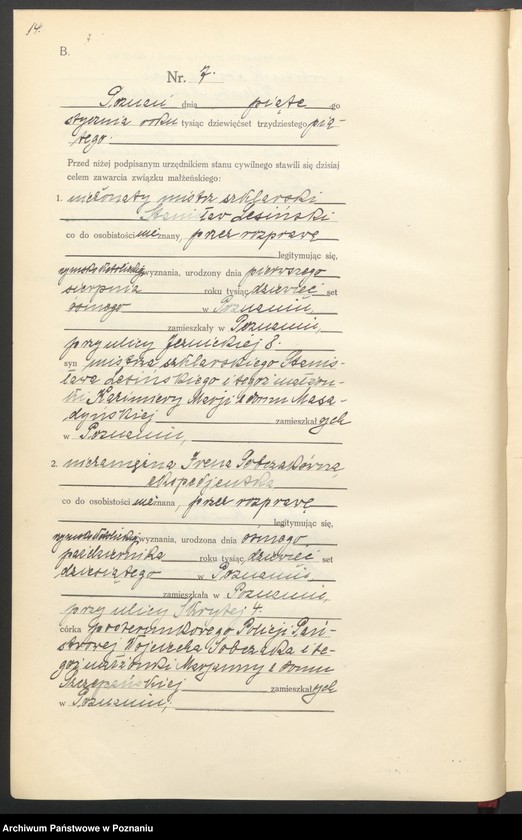 14.
B.
Nr. 7.
Poznań dnia piąte go
stycznia roku tysiąc dziewięćset trzydziestego pią-
tego.
Przed niżej podpisanym urzędnikiem stanu cywilnego stawili się dzisiaj
celem zawarcia związku małżeńskiego:
1. nieżonaty mistrz szklarski
Stanisław Lesiński
co do osobistości nieznany, przez rozprawę
legitymując się,
rzymskokatolickiego wyznania, urodzony dnia pierwszego
sierpnia roku tysiąc dziewięć set
ósmego w Poznaniu,
zamieszkały w Poznaniu,
przy ulicy 8.
syn mistrza szklarskiego Stanis-
ława Lesińskiego i tegoż małżon-
ki Kazimiery Marji z domu Masa-
dyńskiej zamieszkałych
w Poznaniu,
2. niezamężna Irena Sobczakówna
ekspedjentka
co do osobistości nieznana, przez rozprawę
legitymując się,
rzymskokatolickiego wyznania, urodzona dnia ósmego
października roku tysiąc dziewięć set
dziesiątego w Poznaniu,
zamieszkała w Poznaniu,
przy ulicy Skrytej 4.
córka posterunkowego Policji Pań-
stwowej Wojciecha Sobczaka i te-
goż małżonki Marjanny z domu
Szczepańskiej zamieszkałych
w Poznaniu,
Archiwum Państwowe w Poznaniu